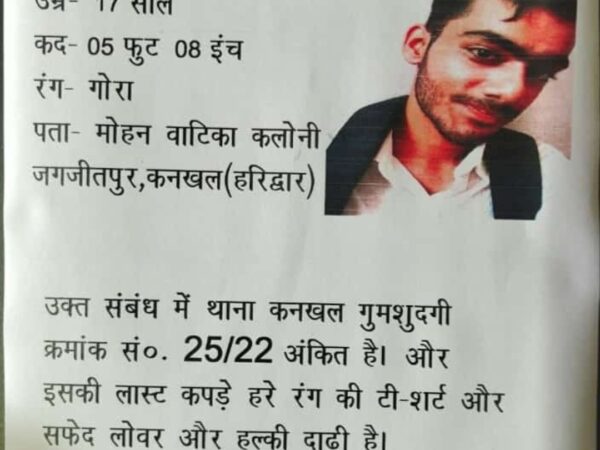 उम्र- 17 साल
कद- 05 फुट 08 इंच
रंग- गोरा
पता- मोहन वाटिका कलोनी
जगजीतपुर,कनखल(हरिद्वार)
उक्त संबंध में थाना कनखल गुमशुदगी
क्रमांक सं०. 25/22 अंकित है। और
इसकी लास्ट कपड़े हरे रंग की टी-शर्ट और
सफेद लोवर और हल्की दाढी है।